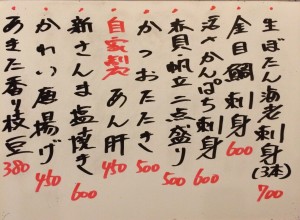 生ぼたん海老刺身(3本) 700
金目鯛刺身 600
活〆かんぱち刺身 600
赤貝帆立二点盛り 500
かつおたたき 500
自家製 あん肝 450
新さんま塩焼き 600
かれい唐揚げ 450
あきた香り枝豆 380